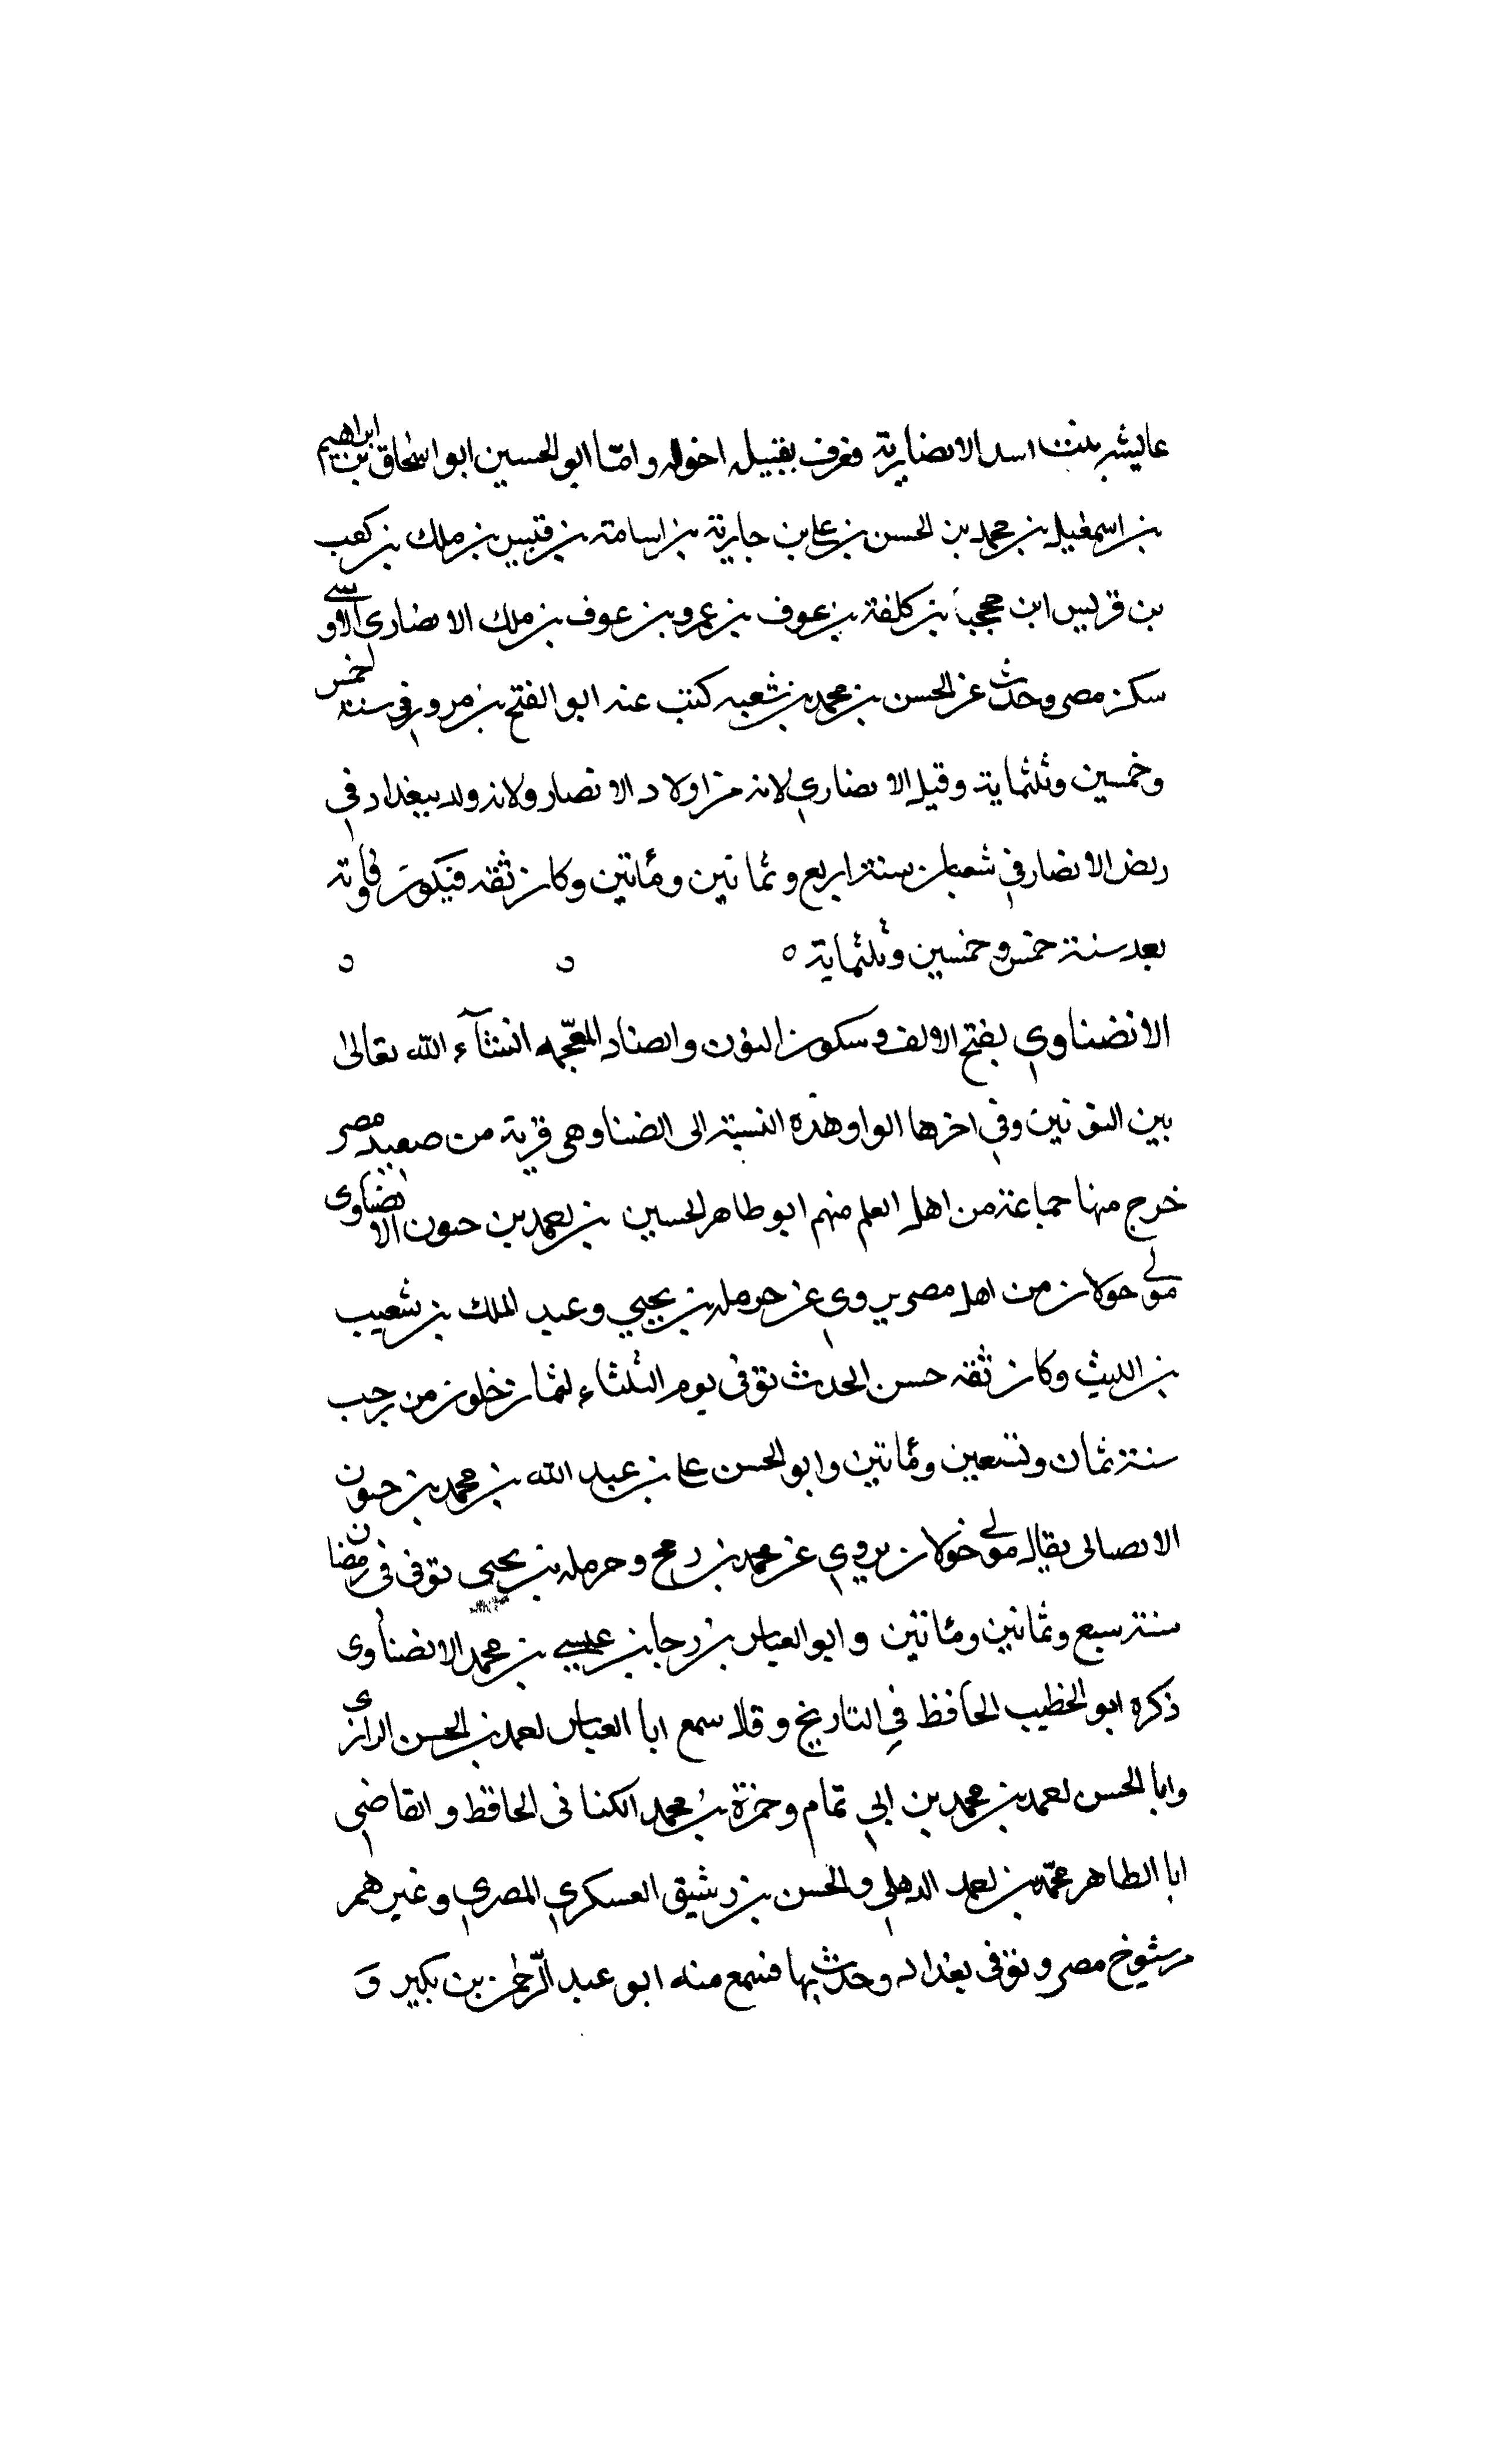 عايشه بنت اسد الانصارية فعرف بقبيله اخواله واما ابو الحسين ابو اسحاق بن ابراهيم
بن اسمعيل بن محمد بن الحسن بن علي بن جارية بن اسامة بن قيس بن ملك بن كعب
بن قريس ابن جحجبا بن كلفة بن عوف بن عمرو بن عوف بن ملك الانصاري الاوسي
سكن مصر وحدث عن الحسن بن محمد بن شعبه كتب عنه ابو الفتح بن مرور في سنة خمس
وخمسين وثلثماية وقيل الانصاري لانه من اولاد الانصار ولانه ولد ببغداد في
ربض الانصار في شعبان سنة اربع وثمانين ومائتين وكان ثقه فيكون وفاته
بعد سنة خمس وخمسين وثلثماية ه
الانضناوي بفتح الالف وسكون النون والضاد المعجمه انشآء الله تعالى
بين النونين وفي اخرها الواو هذه النسبة الى انضنا وهي قرية من صعيد مصر
خرج منها جماعة من اهل العلم منهم ابو طاهر الحسين بن احمد بن حيون الانضناوى
مولى خولان من اهل مصر يروي عن حرمله بن يحيي وعبد الملك بن شعيب
بن الليث وكان ثقه حسن الحدث توفى يوم الثلثاء لثمان خلون من رجب
سنة ثمان وتسعين ومائتين وابو الحسن علي بن عبد الله بن محمد بن حيون
الانصالى يقال مولى خولان يروي عن محمد بن رمح وحرمله بن يحيى توفى فى رمضان
سنة سبع وثمانين ومائتين وابو العباس بن رجا بن عيسى بن محمد الانضناوى
ذكره ابو الخطيب الحافظ في التاريخ وقال سمع ابا العباس احمد بن الحسن الرازى
وابا الحسن احمد بن محمد بن ابي تمام وحمزة بن محمد الكنانى الحافظ والقاضي
ابا الطاهر محمد بن احمد الدهلي والحسن بن رشيق العسكري المصري وغيرهم
من شيوخ مصر وتوفى بغداد وحدث بها فسمع منه ابو عبد الرحمن بن بكير و